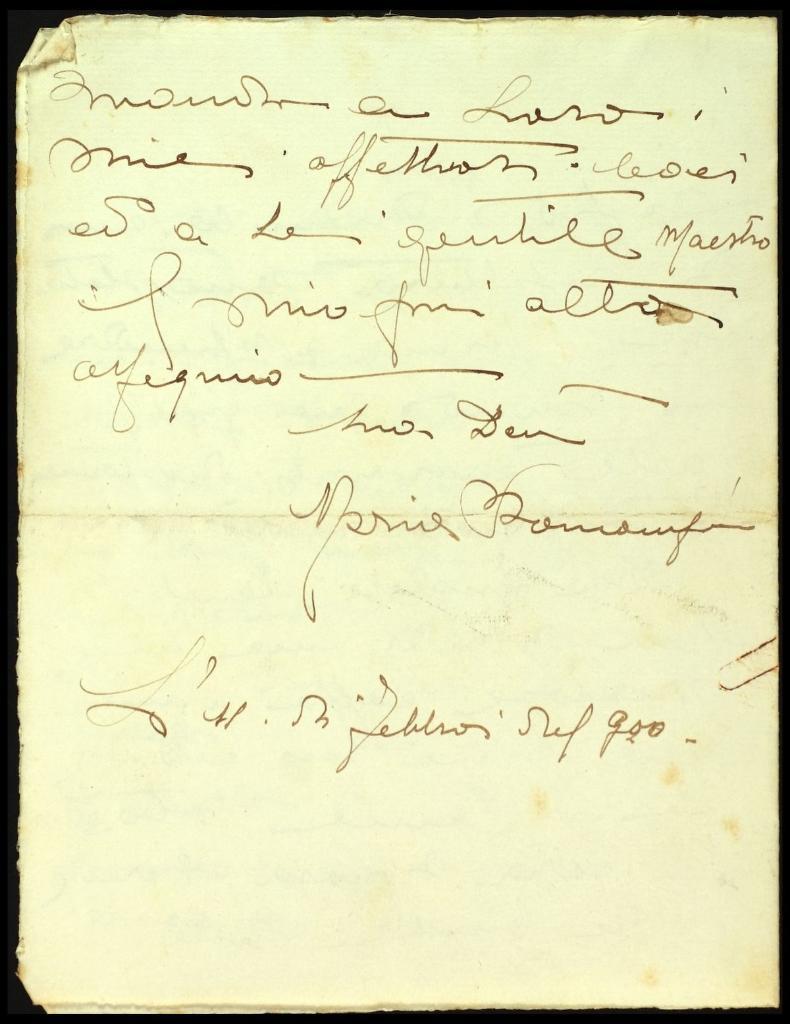 mando a Loro i
miei affettuosi baci
ed a Lei gentile Maestro
il mio più alto
ossequio
Sua Dev
Maria
L' 11. di Febbrai del 900.